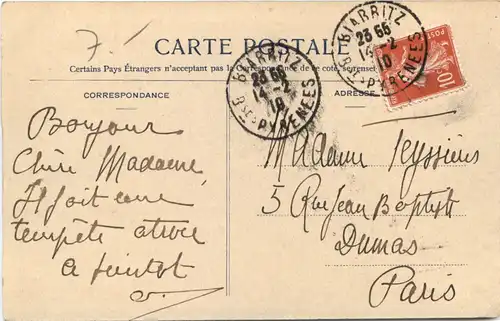 7.-
CARTE POSTALE
Certains Pays Étrangers n'acceptant pas la Correspondance de ce côté, se rensei
CORRESPONDANCE
ADRESSE
BIARRITZ
23 65
14-2
10
BSES PYRENEES
BIARRITZ
23 65
14-2
10
BSES PYRENEES
10c
POSTES
Bonjour
Chère Madame,
Il fait une
tempête atroce
a bientot
Madame Teyssieres
5 Rue Jean Baptiste
Dumas
Paris